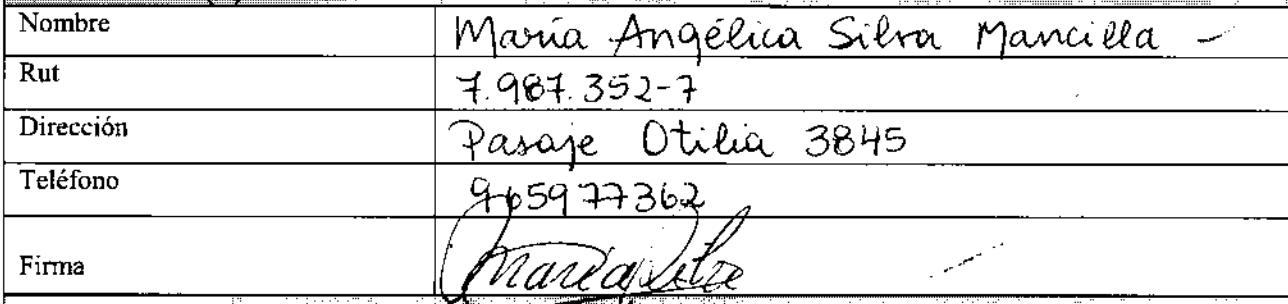 Nombre María Angélica Silva Mancilla -
Rut 7.987.352-7
Dirección Pasaje Otilia 3845
Teléfono 965977362
Firma María Silva